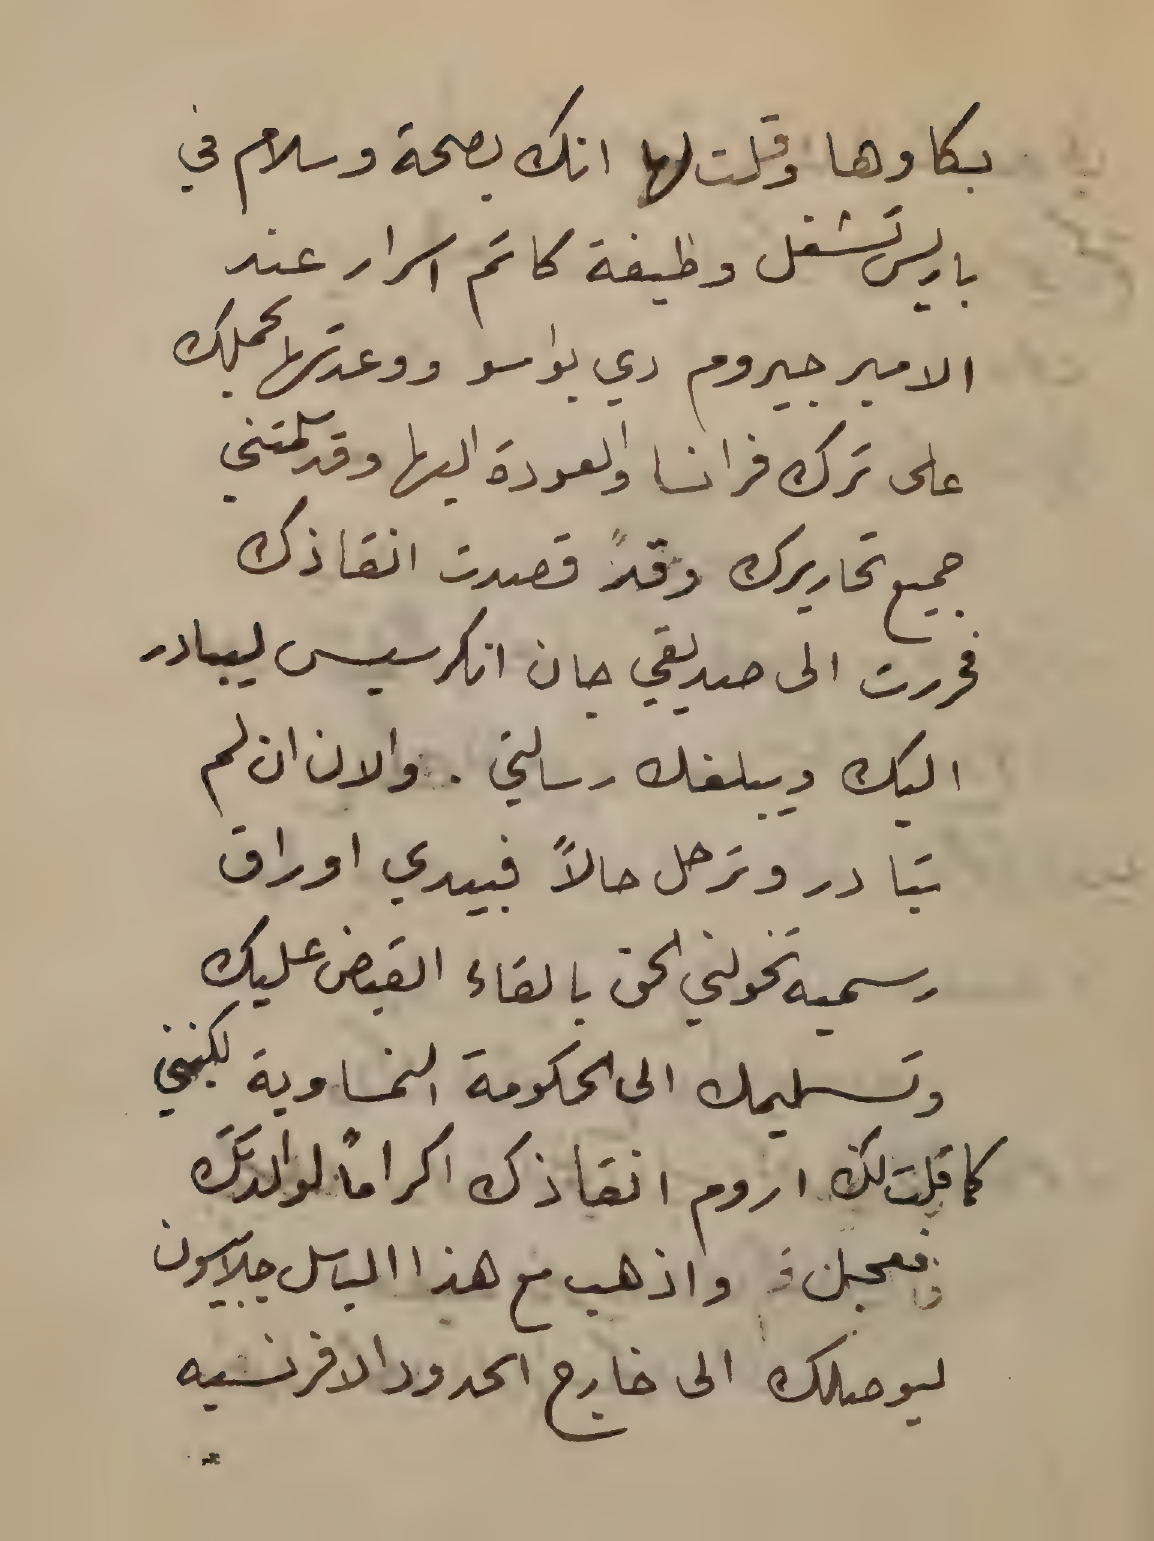 بكاوها وقلت لها انك بصحة وسلام في
باريس تشغل وظيفة كاتم اسرار عند
الامير جيروم دي بواسو ووعدتها بحملك
على ترك فرانسا والعودة اليها وقد سلمتني
جميع تحاريرك وقد قصدت انقاذك
فحررت الى صديقي جان انكرسيس ليبادر
اليك ويبلغك رسالتي . والان ان لم
تبادر وترحل حالاً فبيدي اوراق
رسميه تخولني الحق بالقاء القبض عليك
وتسليمك الى الحكومة النمساوية لكنني
كما قلت لك اروم انقاذك اكراماً لوالدتك
فعجل واذهب مع هذا الباسل جلاسون
ليوصلك الى خارج الحدود الافرنسيه